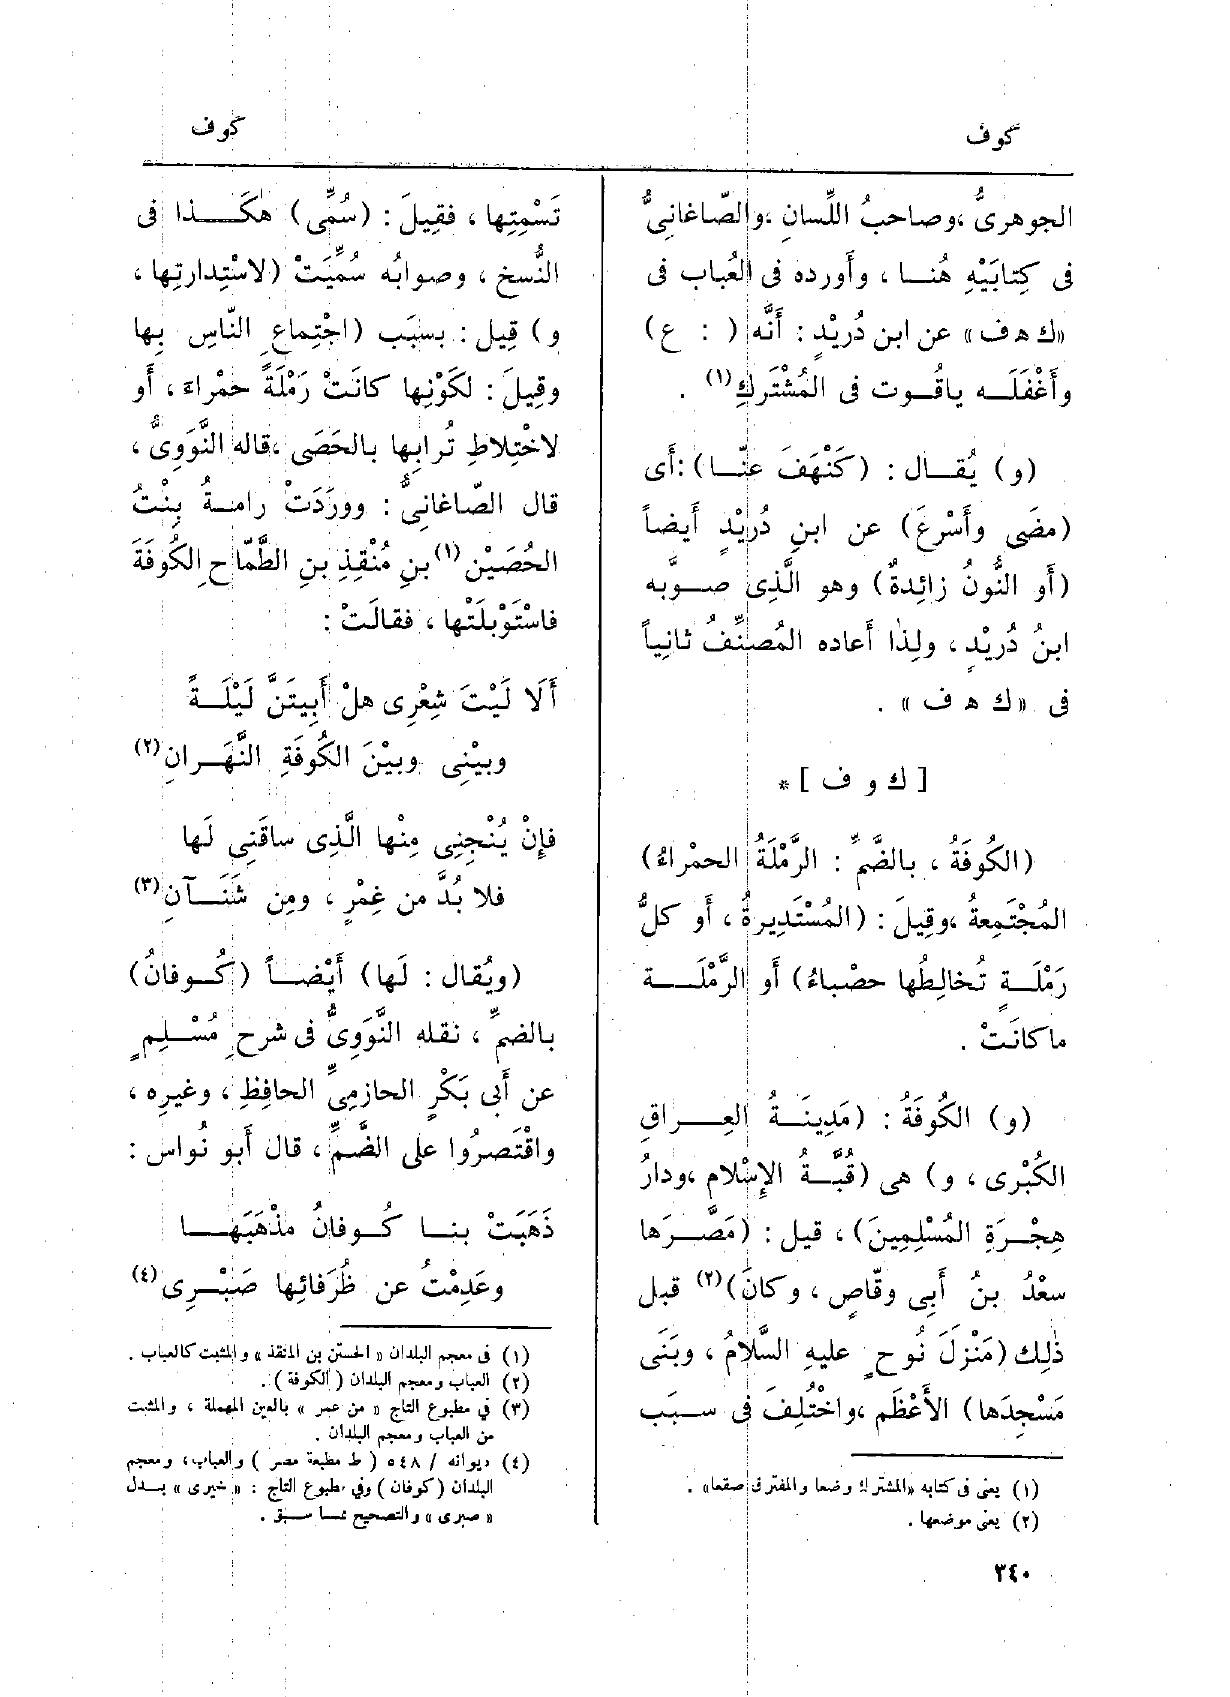 كوف
كوف
الجوهرىُّ ،وصاحبُ اللِّسانِ ،والصّاغانِىُّ
فى كِتابَيْهِ هُنـا ، وأَورده فى العُباب فى
«ك ه ف» عن ابن دُرَيْدٍ : أَنَّه ( : ع)
وأَغْفَلَـه ياقُـوت فى المُشْتَركِ(١) .
(و) يُقـال : (كَنْهَفَ عنّـا) :أَى
(مضَى وأَسْرعَ) عن ابنِ دُرَيْدٍ أَيضاً
(أَو النُّونُ زائِدةٌ) وهو الَّذِى صـوَّبه
ابنُ دُريْدٍ ، ولِذٰا أَعاده المُصنِّفُ ثانِياً
فى «ك ه ف» .
[ ك و ف ] *
(الكُوفَةُ ، بالضَّمِّ : الرَّمْلَةُ الحمْراءُ)
المُجْتَمِعةُ ،وقِيلَ : (المُسْتَدِيرةُ ، أَو كلُّ
رَمْلَـةٍ تُخالِطُها حصْباءُ) أَو الرَّمْلَـة
ماكانَتْ .
(و) الكُوفَةُ : (مَدِينَـةُ العِـراقِ
الكُبْرى ، و) هى (قُبَّـةُ الإِسْلامِ ،ودارُ
هِجْـرَةِ المُسْلِمِينَ) ، قيل : (مَصَّـرَها
سعْدُ بنُ أَبِى وقّاصٍ ، وكانَ)(٢) قبل
ذٰلِك (مَنْزِلَ نُوحٍ عليهِ السَّلامُ ، وبَنَى
مَسْجِدَها) الأَعْظَم ،واخْتُلِفَ فى سـبَب
(١) يعنى فى كتابه «المشترك وضعا والمفترق صقعا» .
(٢) يعنى موضعها .
تَسْمِيَتِها ، فقِيلَ : (سُمِّى) هكَـذا فى
النُّسخ ، وصوابُه سُمِّيَتْ (لاسْتِدارتِها ،
و) قِيل : بسبَب (اجْتِماعِ النّاسِ بِها
وقِيلَ : لكَوْنِها كانَتْ رَمْلَةً حمْراءَ ، أَو
لاخْتِلاطِ تُرابِها بالحَصَى ،قاله النَّوَوِىُّ ،
قال الصّاغانِىُّ : وورَدَتْ رامـةُ بِنْتُ
الحُصَيْنِ(١) بنِ مُنْقِذِ بنِ الطَّمّاحِ الكُوفَةَ
فاسْتَوْبلَتْها ، فقالَتْ :
أَلَا لَيْتَ شِعْرِى هلْ أَبِيتَنَّ لَيْلَـةً
وبيْنِى وبيْنَ الكُوفَةِ النَّهَـرانِ(٢)
فإِنْ يُنْجِنِى مِنْها الَّذِى ساقَنِى لَها
فلا بُدَّ من غِمْرٍ ، ومِن شَنَـآنِ(٣)
(ويُقال : لَها) أَيْضـاً (كُـوفانُ)
بالضمِّ ، نقله النَّوَوِىُّ فى شرح مُسْلِمٍ
عن أَبِى بَكْرٍ الحازمِىِّ الحافِظِ ، وغيرِه ،
واقْتَصرُوا على الضَّمِّ ، قال أَبو نُواس :
ذَهَبَتْ بنـا كُـوفانُ مذْهَبَهـا
وعَدِمْتُ عن ظُرَفائِها صَبْـرِى(٤)
(١) فى معجم البلدان «الحسن بن المنقذ» والمثبت كالعباب .
(٢) العباب ومعجم البلدان (الكوفة) .
(٣) في مطبوع التاج «من عمر» بالعين المهملة ، والمثبت
من العباب ومعجم البلدان .
(٤) ديوانه / ٥٤٨ (ط مطبعة مصر) والعباب ، ومعجم
البلدان (كوفان) وفي مطبوع التاج : «خيرى» بـدل
«صبرى» والتصحيح ممـا سـبق .
٣٤٠